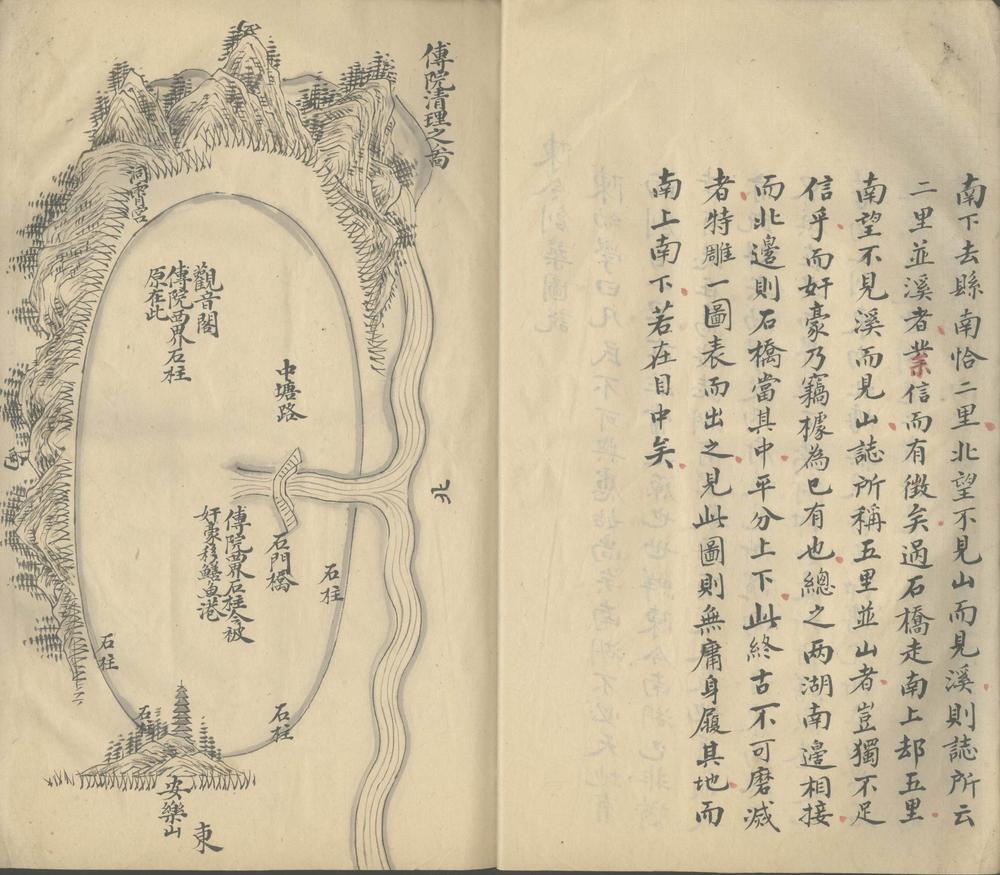 南下去縣南恰二里北望不見山而見溪則誌所云
二里並溪者業信而有徵矣過石橋走南上却五里
南望不見溪而見山誌所稱五里並山者豈獨不足
信乎而奸豪乃竊據為已有也總之两湖南邊相接
而北邊則石橋當其中平分上下此終古不可磨滅
者特雕一圖表而出之見此圖則無庸身履其地而
南上南下若在目中矣
傅院清理之啚
洞霄宮
觀音閣
傅院西界石柱
原在此
中塘路
北
石門橋
石柱
傅院西界石柱今被
奸豪移鱔魚港
石柱
石柱
石柱
安樂山
東